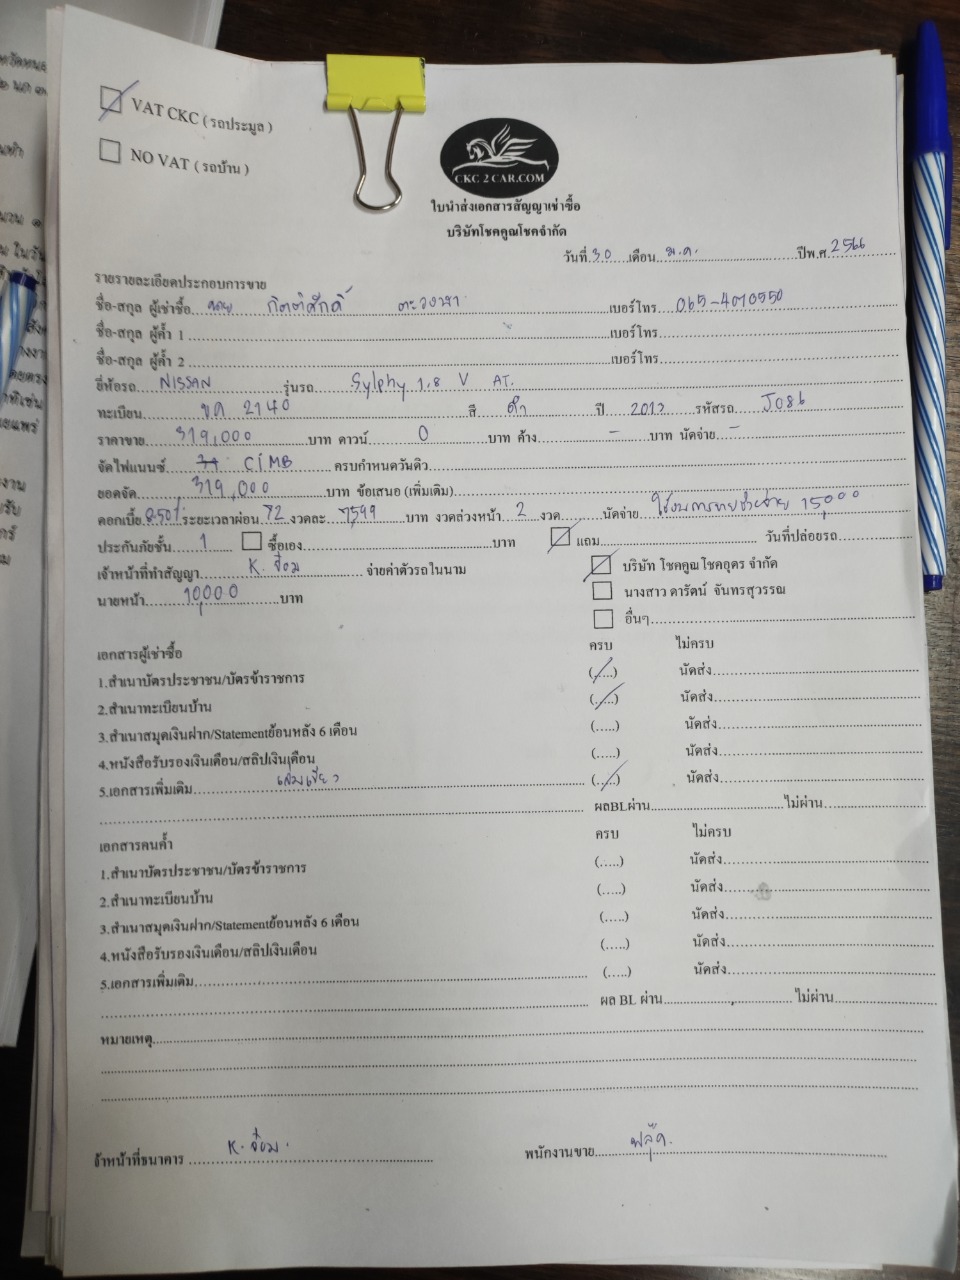 VAT CKC ( รถประมูล )
NO VAT ( รถบ้าน )
CKC 2 CAR.COM
ใบนำส่งเอกสารสัญญาเช่าซื้อ
บริษัทโชคคูณโชคจำกัด
วันที่.30.....เดือน...ม.ค...ปีพ.ศ.2566
รายรายละเอียดประกอบการขาย
ชื่อ-สกุล ผู้เช่าซื้อ...นาย กิตติศักดิ์...เบอร์โทร...065-4010550
ชื่อ-สกุล ผู้ค้ำ 1...เบอร์โทร...
ชื่อ-สกุล ผู้ค้ำ 2...เบอร์โทร...
ยี่ห้อรถ...NISSAN...รุ่นรถ...Sylphy 1.8 V AT.
ทะเบียน...2140...สี...ดำ...ปี...2013...รหัสรถ...J086
ราคาขาย...319,000...บาท ดาวน์...0...บาท ค้าง...-...บาท นัดจ่าย...-
จัดไฟแนนซ์...CIMB...ครบกำหนดวันดิว...
ยอดจัด...319,000...บาท ข้อเสนอ (เพิ่มเติม)...
ดอกเบี้ย...ระยะเวลาผ่อน..72..งวดละ...7599...บาท งวดล่วงหน้า...2...งวด...นัดจ่าย...15,000
ประกันภัยชั้น...1... ซื้อเอง...บาท แถม...วันที่ปล่อยรถ...
เจ้าหน้าที่ทำสัญญา...K....จ่ายค่าตัวรถในนาม บริษัท โชคคูณโชคอุดร จำกัด
นายหน้า...10,000...บาท นางสาว ดารัตน์ จันทรสุวรรณ
อื่นๆ...
เอกสารผู้เช่าซื้อ ครบ ไม่ครบ
1.สำเนาบัตรประชาชน/บัตรข้าราชการ (../..) นัดส่ง...
2.สำเนาทะเบียนบ้าน (../..) นัดส่ง...
3.สำเนาสมุดเงินฝาก/Statementย้อนหลัง 6 เดือน (.....) นัดส่ง...
4.หนังสือรับรองเงินเดือน/สลิปเงินเดือน (.....) นัดส่ง...
5.เอกสารเพิ่มเติม...เล่มเขียว (../..) นัดส่ง...
ผลBLผ่าน...ไม่ผ่าน...
เอกสารคนค้ำ ครบ ไม่ครบ
1.สำเนาบัตรประชาชน/บัตรข้าราชการ (.....) นัดส่ง...
2.สำเนาทะเบียนบ้าน (.....) นัดส่ง...
3.สำเนาสมุดเงินฝาก/Statementย้อนหลัง 6 เดือน (.....) นัดส่ง...
4.หนังสือรับรองเงินเดือน/สลิปเงินเดือน (.....) นัดส่ง...
5.เอกสารเพิ่มเติม... (.....) นัดส่ง...
ผล BL ผ่าน...ไม่ผ่าน...
หมายเหตุ...
จ้าหน้าที่ธนาคาร...K. พนักงานขาย...